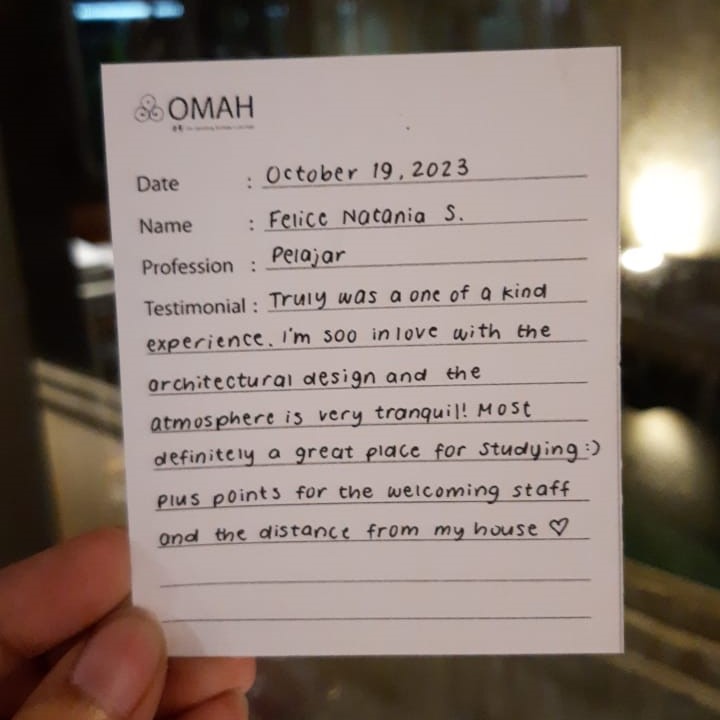 OMAH
Date : October 19, 2023
Name : Felice Natania S.
Profession : Pelajar
Testimonial : Truly was a one of a kind
experience. I'm soo in love with the
architectural design and the
atmosphere is very tranquil! Most
definitely a great place for studying :)
plus points for the welcoming staff
and the distance from my house ♡